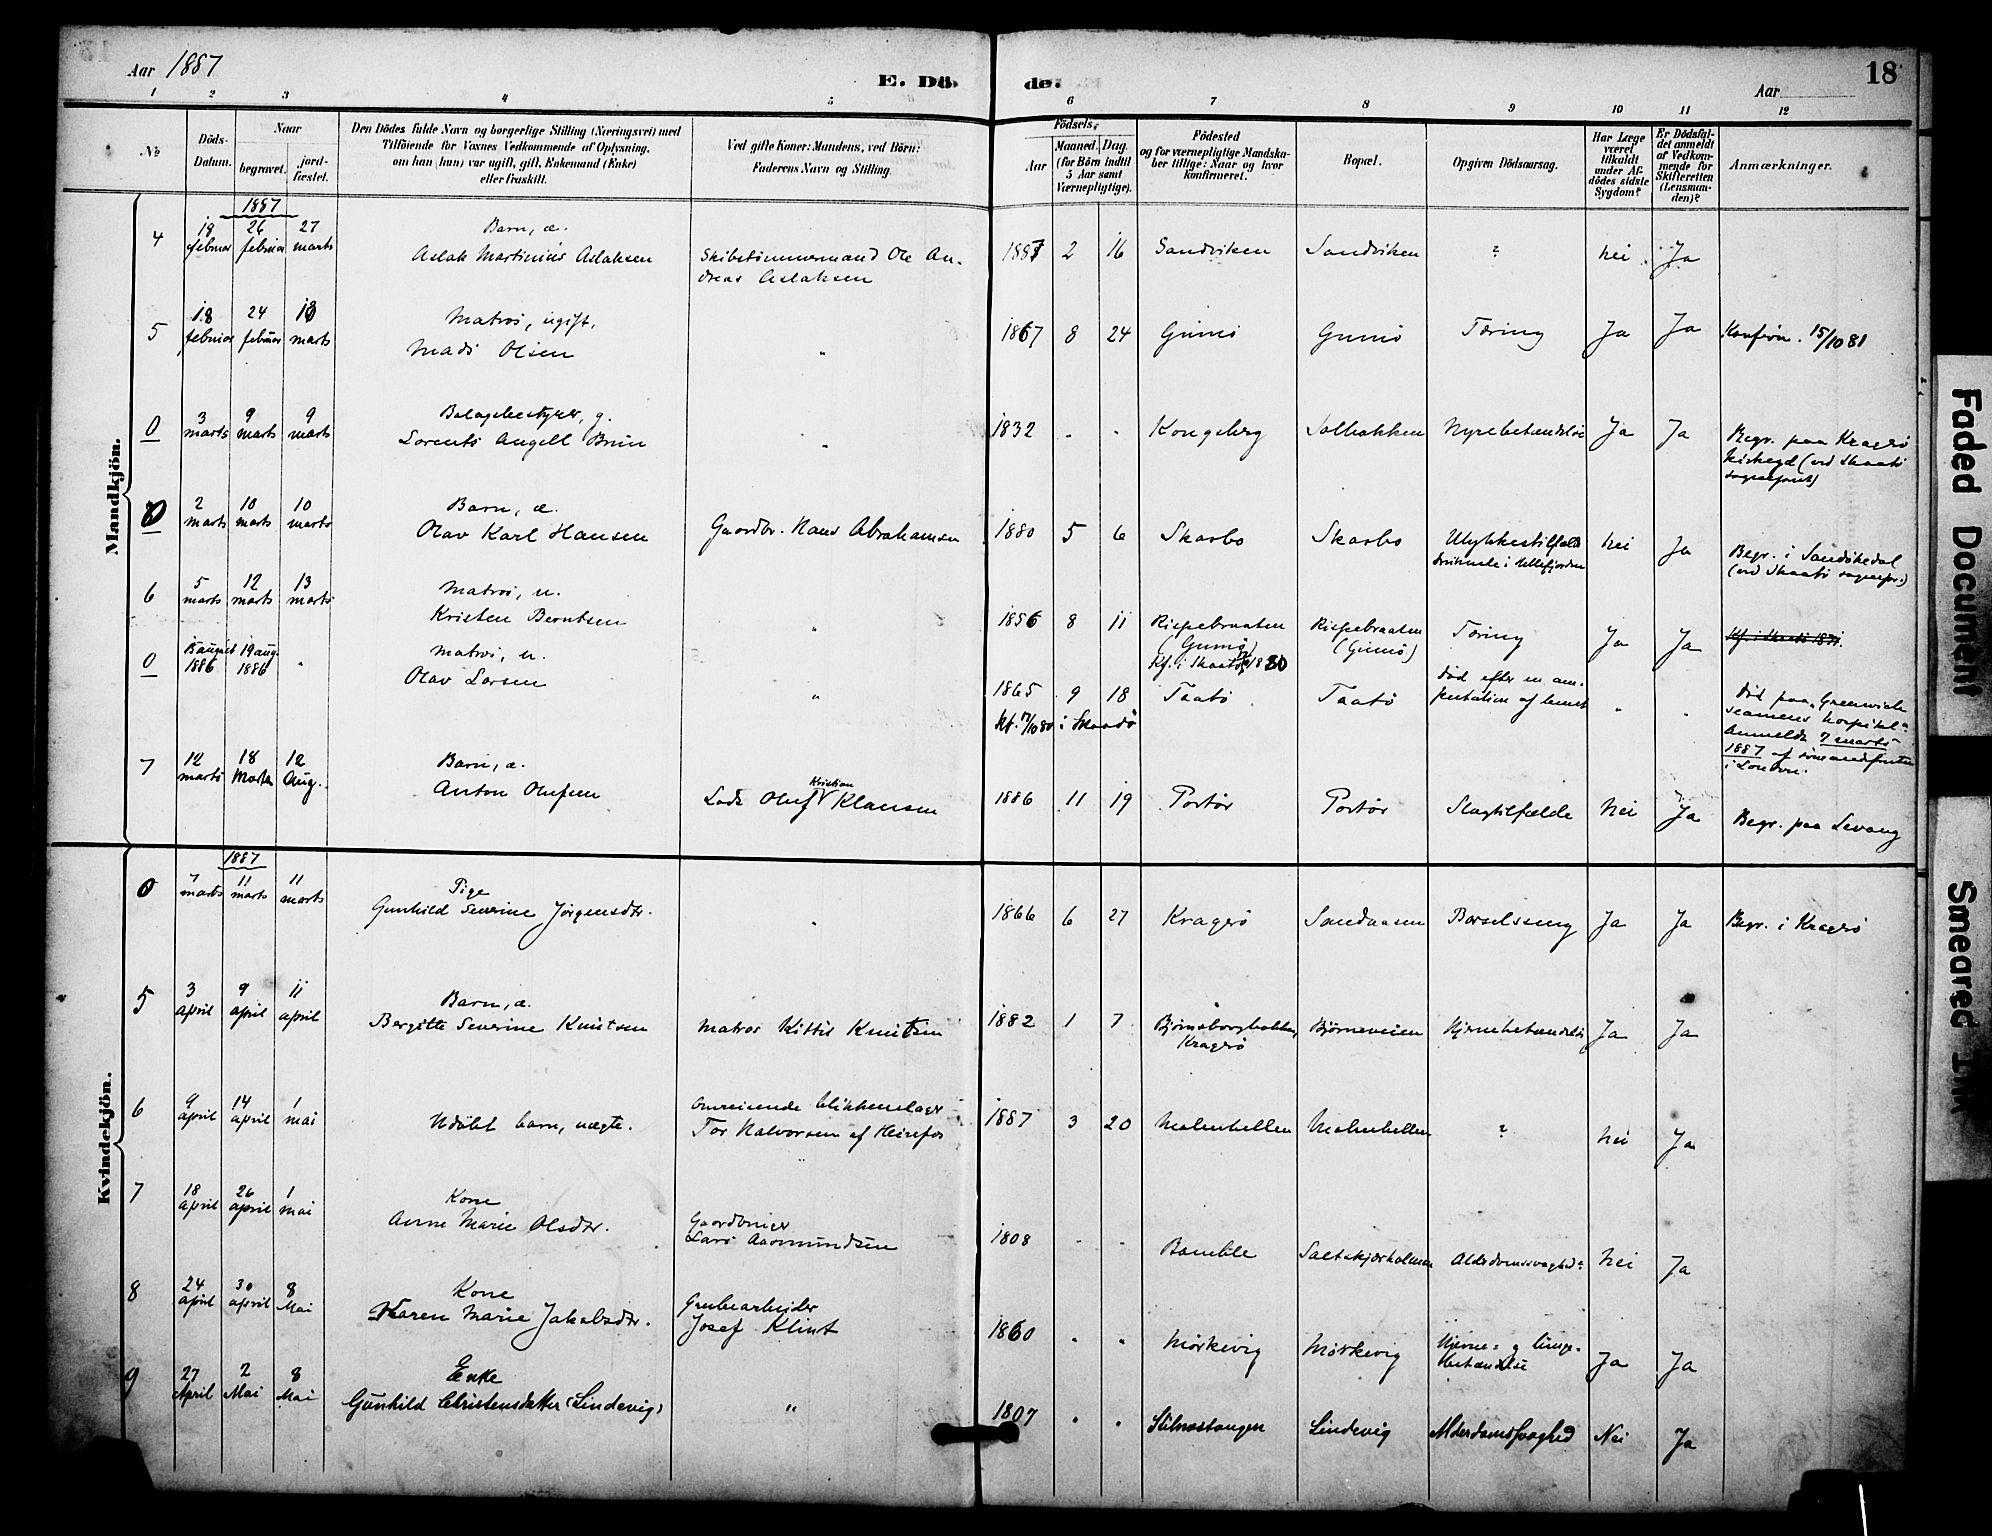 Aar 1887
E. Dö
de.
18
Aar
1 2 3 4 5 6 7 8 9 10 11 12
No
Döds-
Datum.
Naar
begravet.
jord-
fæstet.
Den Dödes fulde Navn og borgerlige Stilling (Næringsvei) med
Tilföiende for Voxnes Vedkommende af Oplysning,
om han (hun) var ugift, gift, Enkemand (Enke)
eller fraskilt.
Ved gifte Koner: Mandens, ved Börn:
Faderens Navn og Stilling.
Födsels-
Aar
Maaned. Dag.
(for Börn indtil
5 Aar samt
Værnepligtige).
Födested
og for værnepligtige Mandska-
ber tillige: Naar og hvor
konfirmeret.
Bopæl.
Opgiven Dödsaarsag.
Har Læge
været
tilkaldt
under Af-
dödes sidste
Sygdom?
Er Dödsfal-
det anmeldt
af Vedkom-
mende for
Skifteretten
(Lensman-
den)?
Anmærkninger.
Mandkjön.
1887
4 18 februar 26 februar 27 marts
Barn, æ.
Aslak Martinius Aslaksen
Skibstimmermand Ole An-
dreas Aslaksen
1887 2 16 Sandviken Sandviken ? Nei Ja
5 18 februar 24 februar 13 marts
Matros, ugift,
Mads Olsen
"
1867 8 24 Gumø Gumø Tæring Ja Ja Konfirm. 15/10 81
0 3 marts 9 marts 9 marts
g.
Lorents Angell Brun
"
1832 " " Kongsberg Solbakken Nyrebetændelse Ja Ja Begr. paa Kragerø
0 2 marts 10 marts 10 marts
Barn, æ.
Olav Karl Hansen
Gaardbr. Hans Abrahamsen
1880 5 6 Skarbo Skarbo Ulykkestilfælde
druknede i Hellefjorden
Nei Ja Begr. i Sandøkedal
6 5 marts 12 marts 13 marts
Matros, u.
Kristen Berntsen
"
1856 8 11 Rispebraaten
(Gumø)
Rispebraaten
(Gumø)
Tæring Ja Ja
0 13 august 1886 19 aug. 1886 "
Matros, u.
Olav Larsen
"
1865 9 18 Taatø Taatø
Død efter en am-
putation af benet
" "
Død paa "Greenwich
seamens hospital"
Anmeldt 7 marts
1887 af
i London.
7 12 marts 18 Marts 12 Aug.
Barn, æ.
Anton Olufsen
Lods Oluf Kristian Klausen
1886 11 19 Portør Portør Slagtilfælde Nei Ja Begr. paa Levang
Kvindekjön.
1887
0 7 marts 11 marts 11 marts
Pige
Gunhild Severine Jørgensdtr.
"
1866 6 27 Kragerø Sandaasen Barselsseng Ja Ja Begr. i Kragerø
5 3 april 9 april 11 april
Barn, æ.
Bergitte Severine Knutsen
Matros Kittil Knutsen
1882 1 7 Bjørnsborgbakken,
Kragerø
Bjørneveien Hjernebetændelse Ja Ja
6 9 april 14 april 1 mai
Udøbt barn, uægte.
Omreisende blikkenslager
Tor Halvorsen af Heirefos
1887 3 20 Malmhellen Malmhellen ? Nei Ja
7 18 april 26 april 1 mai
Kone
Anne Marie Olsdtr.
Gaardbruger
Lars Aasmundsen
1808 " " Bamble Saltskjærholmen Alderdomssvaghed Nei Ja
8 24 april 30 april 8 Mai
Kone
Karen Marie Jakobsdtr.
Grubearbeider
Josef Klint
1860 " " Mørkevig Mørkevig
Hjerne- og lunge-
betændelse
Ja Ja
9 27 April 2 Mai 8 Mai
Enke
Gunhild Christensdatter (Lindevig)
"
1807 " " Stilnestangen Lindevig Alderdomssvaghed Nei Ja
Faded Document
Smeared Ink